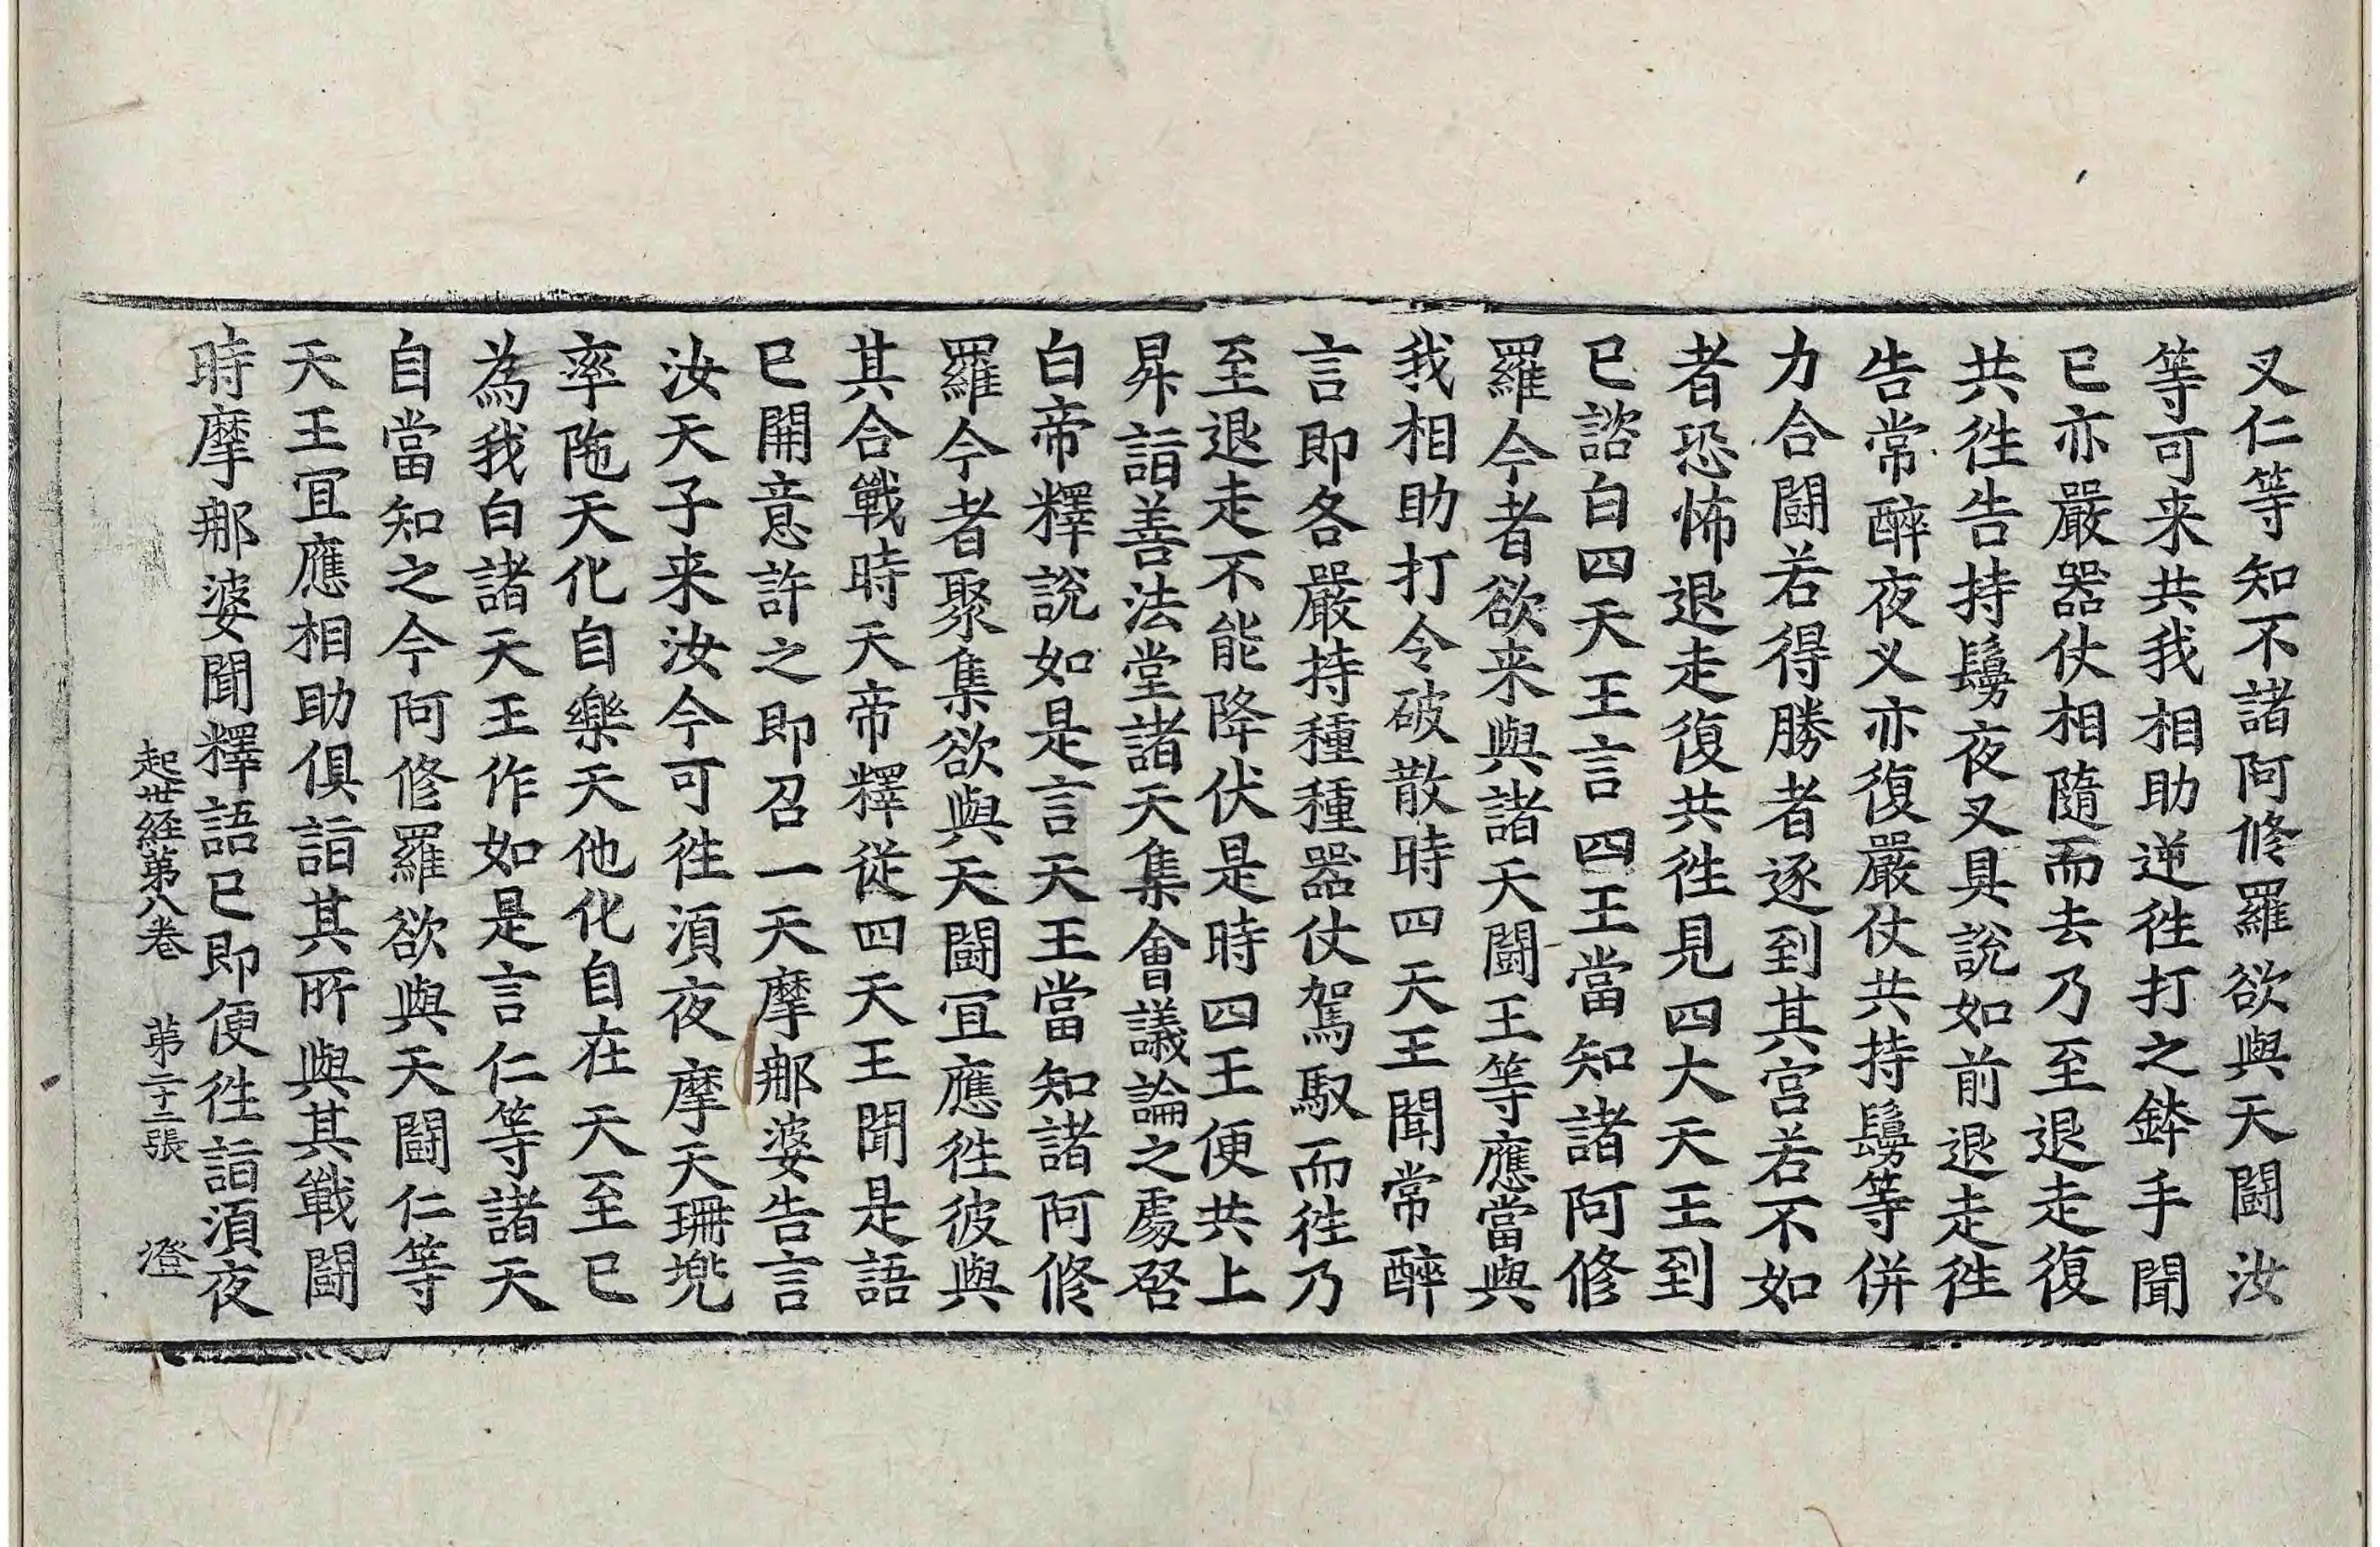 叉仁等知不諸阿修羅欲與天鬪汝
等可来共我相助逆徃打之鉢手聞
已亦嚴器仗相隨而去乃至退走復
共徃告持鬘夜叉具說如前退走徃
告常醉夜叉亦復嚴仗共持鬘等併
力合鬪若得勝者逐到其宫若不如
者恐怖退走復共徃見四大天王到
已諮白四天王言四王當知諸阿修
羅今者欲来與諸天鬪王等應當與
我相助打令破散時四天王聞常醉
言即各嚴持種種器仗駕馭而徃乃
至退走不能降伏是時四王便共上
昇詣善法堂諸天集會議論之處啓
白帝釋說如是言天王當知諸阿修
羅今者聚集欲與天鬪冝應徃彼與
其合戰時天帝釋從四天王聞是語
已開意許之即召一天摩那婆告言
汝天子来汝今可徃湏夜摩天珊兠
率陁天化自樂天他化自在天至已
為我白諸天王作如是言仁等諸天
自當知之今阿修羅欲與天鬪仁等
天王冝應相助俱詣其所與其戰鬪
時摩那婆聞釋語已即便徃詣湏夜
起世経第八卷 第二十二張 澄